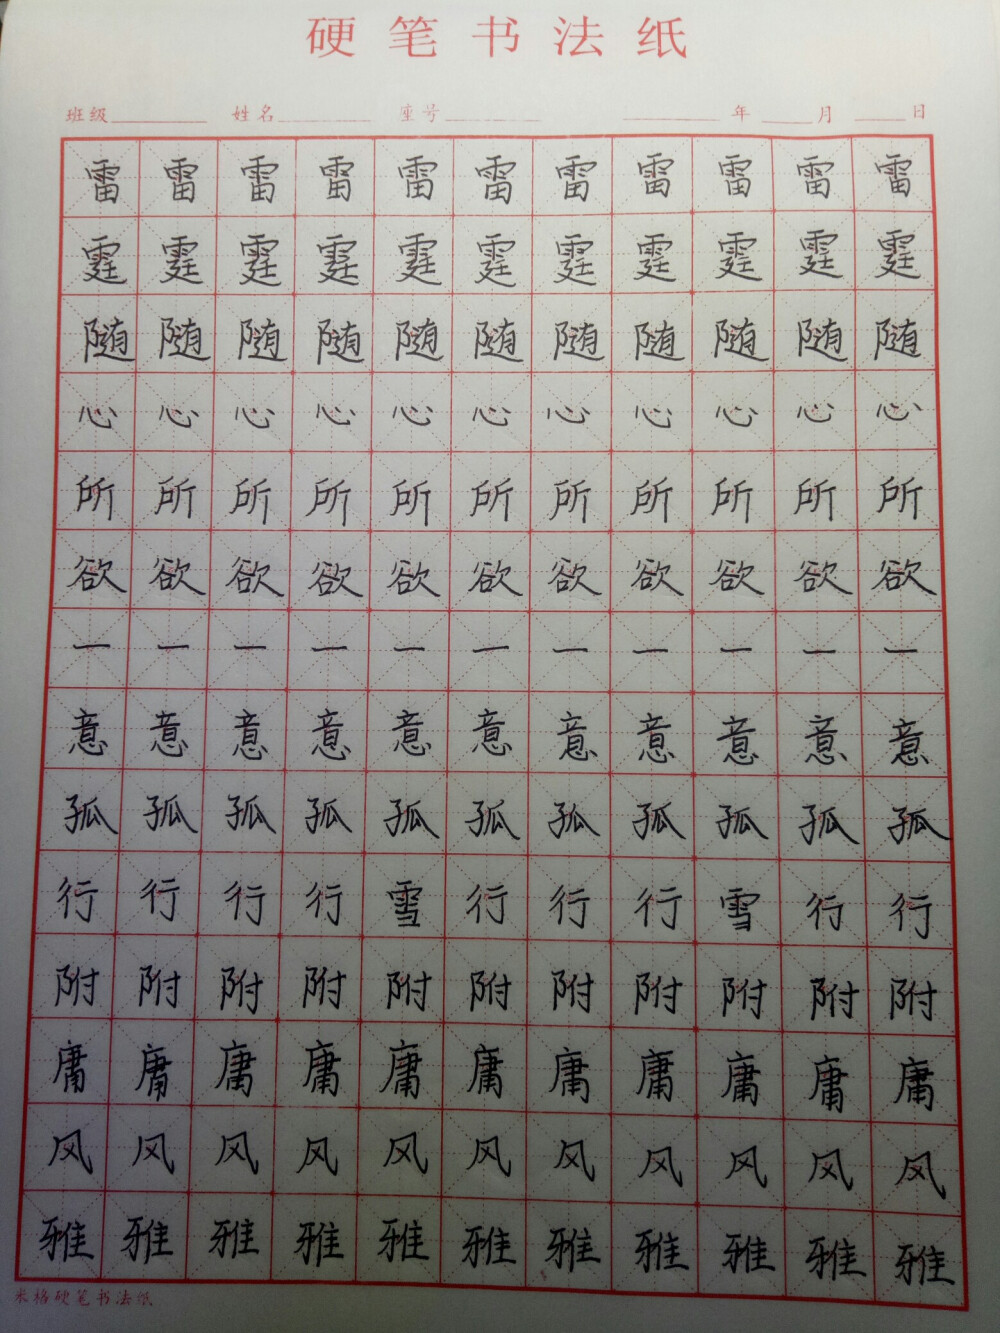 硬笔书法纸
班级 姓名 座号 年 月 日
雷雷雷雷雷雷雷雷雷雷雷
霆霆霆霆霆霆霆霆霆霆霆
随随随随随随随随随随随
心心心心心心心心心心心
所所所所所所所所所所所
欲欲欲欲欲欲欲欲欲欲欲
一一一一一一一一一一一
意意意意意意意意意意意
孤孤孤孤孤孤孤孤孤孤孤
行行行行雪行行行雪行行
附附附附附附附附附附附
庸庸庸庸庸庸庸庸庸庸庸
风风风风风风风风风风风
雅雅雅雅雅雅雅雅雅雅雅
米格硬笔书法纸